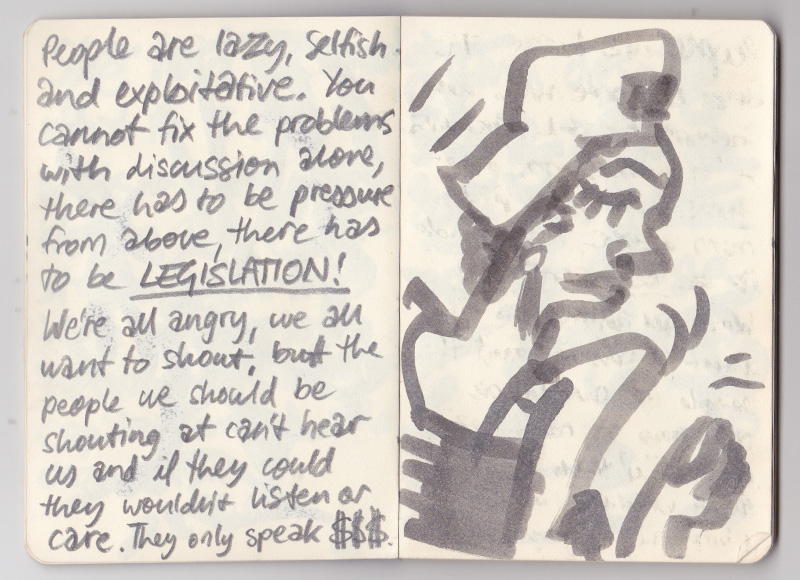 People are lazy, selfish
and exploitative. You
cannot fix the problems
with discussion alone,
there has to be pressure
from above, there has
to be LEGISLATION!
We're all angry, we all
want to shout, but the
people we should be
shouting at can't hear
us and if they could
they wouldn't listen or
care. They only speak $$$.